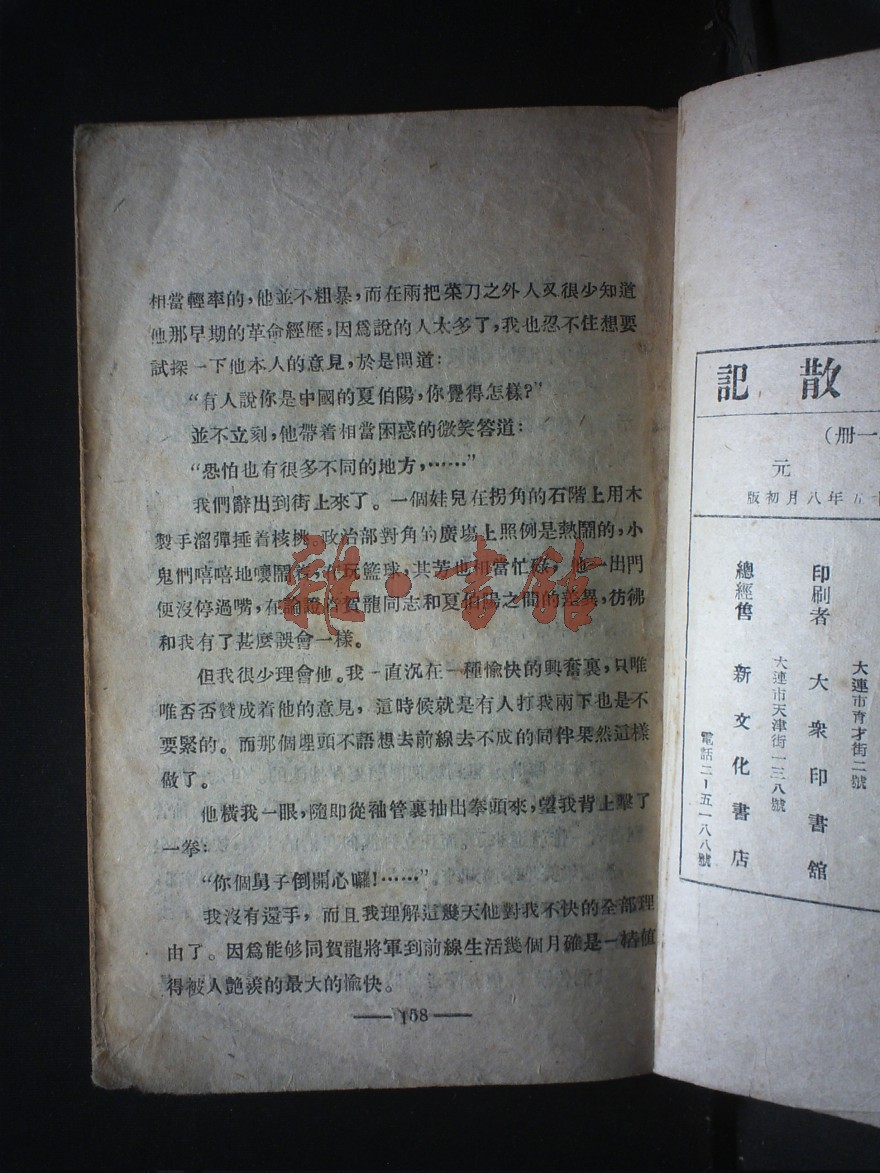 相當輕率的，他並不粗暴，而在兩把菜刀之外人又很少知道
他那早期的革命經歷，因爲說的人太多了，我也忍不住想要
試探一下他本人的意見，於是問道：
“有人說你是中國的夏伯陽，你覺得怎樣？”
並不立刻，他帶着相當困惑的微笑答道：
“恐怕也有很多不同的地方，……”
我們辭出到街上來了。一個娃兒在拐角的石階上用木
製手溜彈捶着核桃。政治部對角的廣場上照例是熱鬧的，小
鬼們嘻嘻地嚷鬧着，在玩籃球，其芳也相當忙碌，他一出門
便沒停過嘴，在論說着賀龍同志和夏伯陽之間的差異，彷彿
和我有了甚麽誤會一樣。
但我很少理會他。我一直沉在一種愉快的興奮裏，只唯
唯否否贊成着他的意見，這時候就是有人打我兩下也是不
要緊的。而那個埋頭不語想去前線去不成的同伴果然這樣
做了。
他橫我一眼，隨即從袖管裏抽出拳頭來，望我背上擊了
一拳：
“你個舅子倒開心囉！……”
我沒有還手，而且我理解這幾天他對我不快的全部理
由了。因爲能够同賀龍將軍到前線生活幾個月確是一樁值
得被人艷羨的最大的愉快。
—— 158 ——
雜·書館
散記
一冊）
元
五年八月初版
大連市育才街二號
印刷者 大衆印書館
大連市天津街一三八號
總經售 新文化書店
電話二－五一八八號